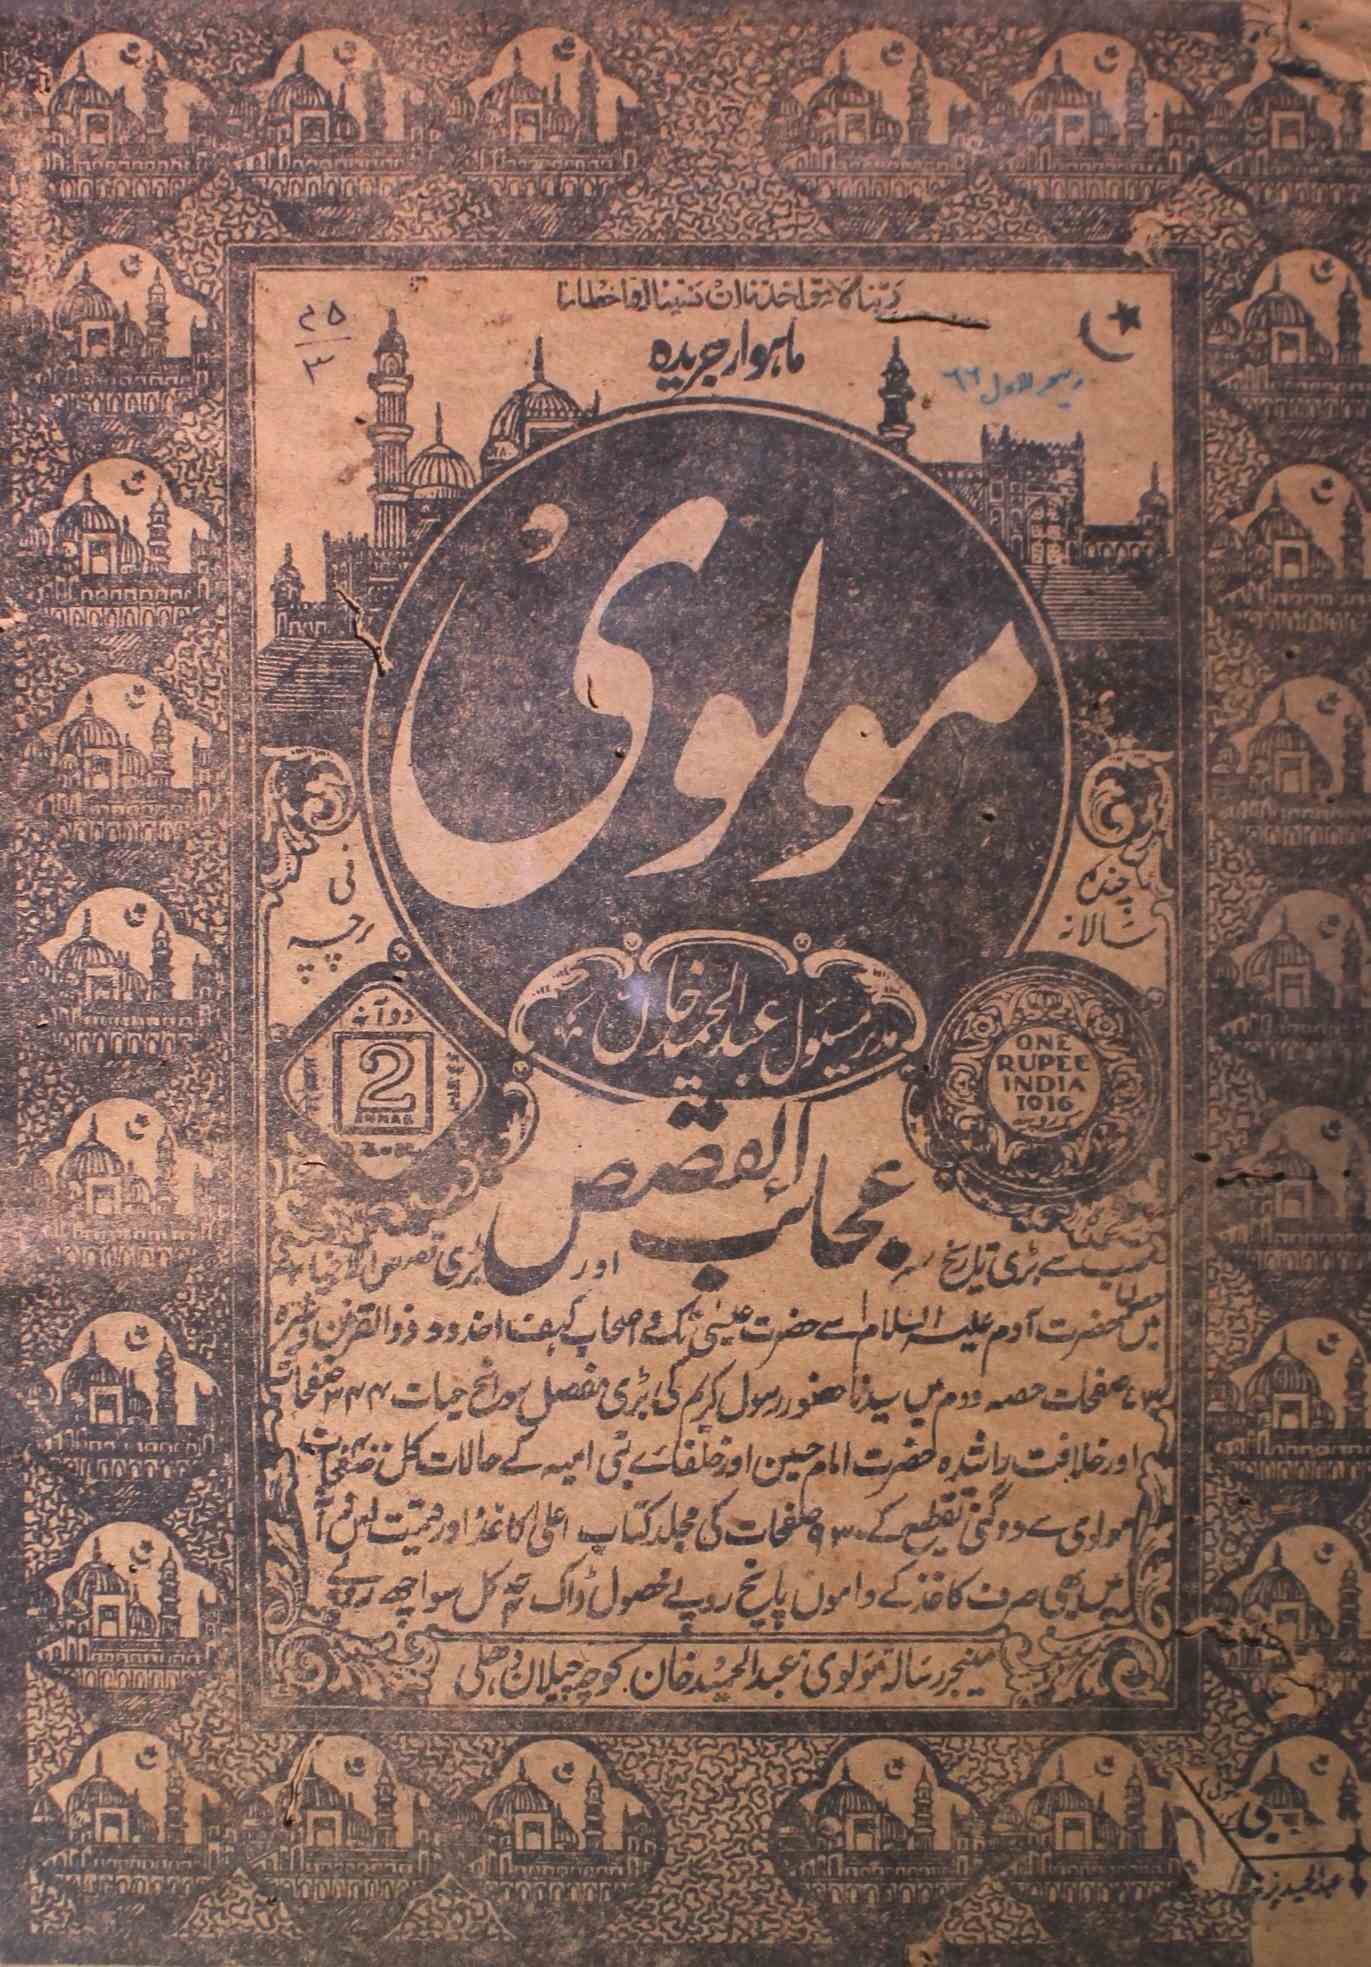 ربنا لا تؤاخذنا ان نسینا او اخطانا
ماہوار جریدہ
۵م
۳
ربیع الاول ۶۶
مولوی
چندہ
سالانہ
فی
پرچہ
مدیر مسئول عبدالحمید خاں
دو آنہ
2
ANNAS
ONE
RUPEE
INDIA
1916
عجائب القصص
سب سے بڑی تاریخ اور بڑی قصص الانبیاء
میں حضرت آدم علیہ السلام سے حضرت عیسیٰ تک اصحاب کہف اخدود و ذوالقرنین وغیرہ
صفحات حصہ دوم میں سیدنا حضور رسول کریم کی بڑی مفصل سوانح حیات ۳۴۴ صفحات
اور خلافت راشدہ حضرت امام حسین اور خلفائے بنی امیہ کے حالات کل
مولوی سے دوگنی تقطیع کے ۹۳۰ صفحات کی مجلد کتاب اعلیٰ کاغذ اور قیمت
میں بھی صرف کاغذ کے داموں پانچ روپے محصول ڈاک کل سوا چھ روپے
منیجر رسالہ مولوی عبدالحمید خان کوچہ چیلان دہلی